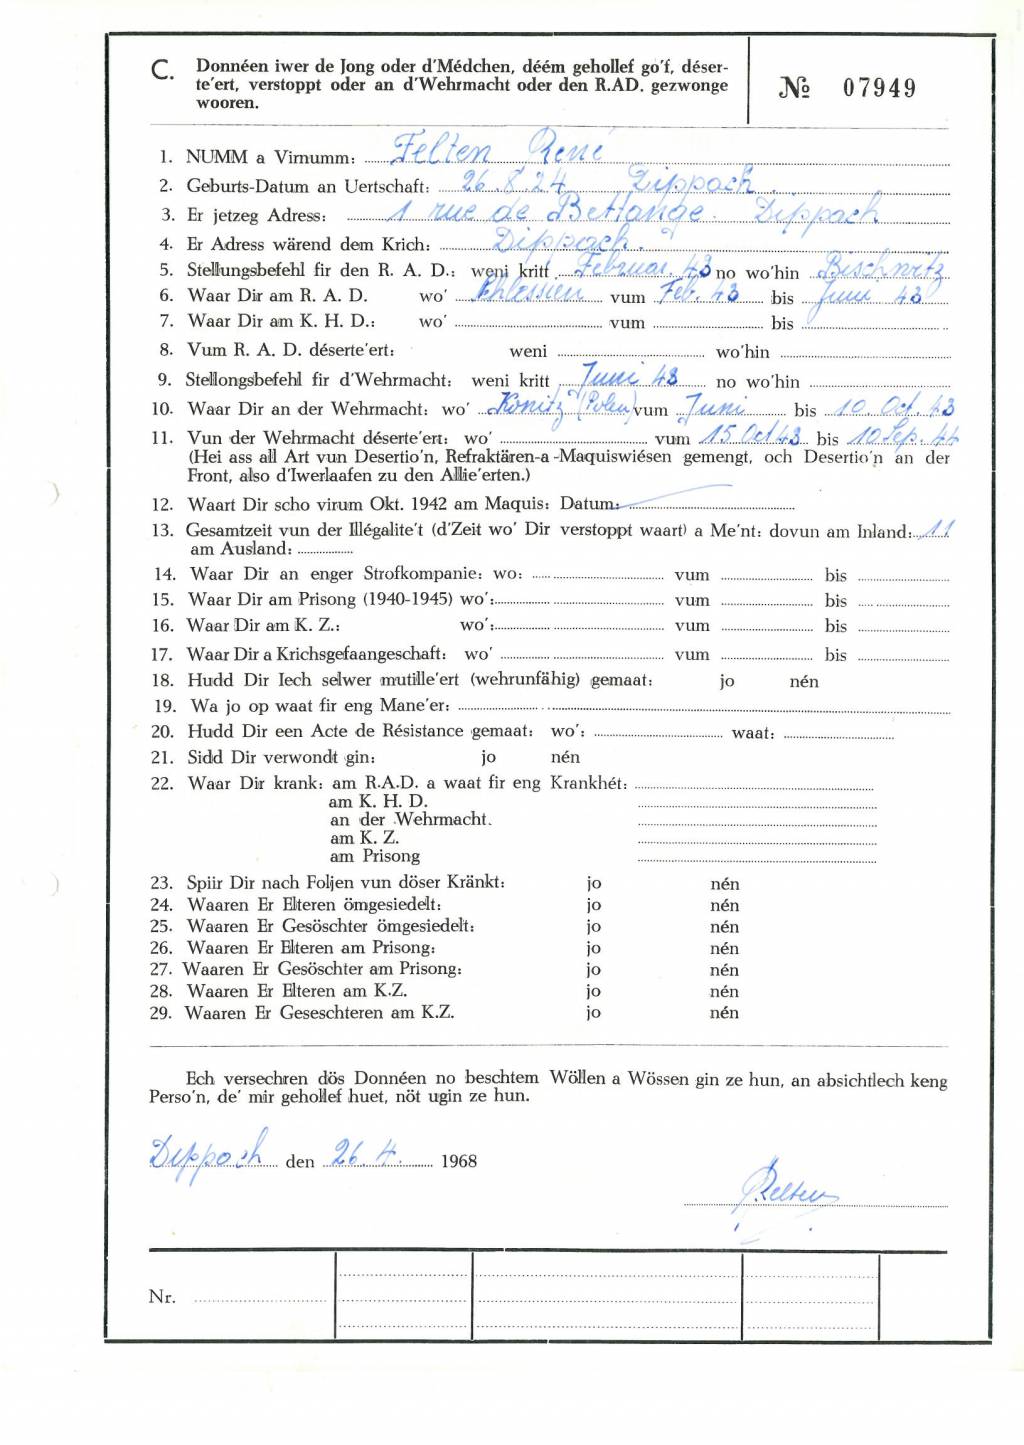 C. Donnéen iwer de Jong oder d'Médchen, déém gehollef go'f, déser-
te'ert, verstoppt oder an d'Wehrmacht oder den R.AD. gezwonge
wooren.
№ 07949
1. NUMM a Virnumm: Felten René
2. Geburts-Datum an Uertschaft: 26.8.24 Dippach.
3. Er jetzeg Adress: 1 rue de Bettange Dippach
4. Er Adress wärend dem Krich: Dippach.
5. Stellungsbefehl fir den R. A. D.: weni kritt Februar. 43 no wo'hin Bischwitz
6. Waar Dir am R. A. D. wo' Schlessien vum Feb. 43 bis Juni 43
7. Waar Dir am K. H. D.: wo' vum bis
8. Vum R. A. D. déserte'ert: weni wo'hin
9. Stellongsbefehl fir d'Wehrmacht: weni kritt Juni 43 no wo'hin
10. Waar Dir an der Wehrmacht: wo' Konitz (Polen) vum Juni bis 10 Oct. 43
11. Vun der Wehrmacht déserte'ert: wo' vum 15 Oct 43 bis 10 Sep. 44
(Hei ass all Art vun Desertio'n, Refraktären-a-Maquiswiésen gemengt, och Desertio'n an der
Front, also d'Iwerlaafen zu den Allie'erten.)
12. Waart Dir scho virum Okt. 1942 am Maquis: Datum:
13. Gesamtzeit vun der Illégalite't (d'Zeit wo' Dir verstoppt waart) a Me'nt: dovun am Inland: 11
am Ausland:
14. Waar Dir an enger Strofkompanie: wo: vum bis
15. Waar Dir am Prisong (1940-1945) wo': vum bis
16. Waar Dir am K. Z.: wo': vum bis
17. Waar Dir a Krichsgefaangeschaft: wo' vum bis
18. Hudd Dir Iech selwer mutille'ert (wehrunfähig) gemaat: jo nén
19. Wa jo op waat fir eng Mane'er:
20. Hudd Dir een Acte de Résistance gemaat: wo': waat:
21. Sidd Dir verwondt gin: jo nén
22. Waar Dir krank: am R.A.D. a waat fir eng Krankhét:
am K. H. D.
an der Wehrmacht.
am K. Z.
am Prisong
23. Spiir Dir nach Foljen vun döser Kränkt: jo nén
24. Waaren Er Elteren ömgesiedelt: jo nén
25. Waaren Er Gesöschter ömgesiedelt: jo nén
26. Waaren Er Elteren am Prisong: jo nén
27. Waaren Er Gesöschter am Prisong: jo nén
28. Waaren Er Elteren am K.Z. jo nén
29. Waaren Er Geseschteren am K.Z. jo nén
Ech versechren dös Donnéen no beschtem Wöllen a Wössen gin ze hun, an absichtlech keng
Perso'n, de' mir gehollef huet, nöt ugin ze hun.
Dippach den 26.4. 1968
RFelten
Nr.